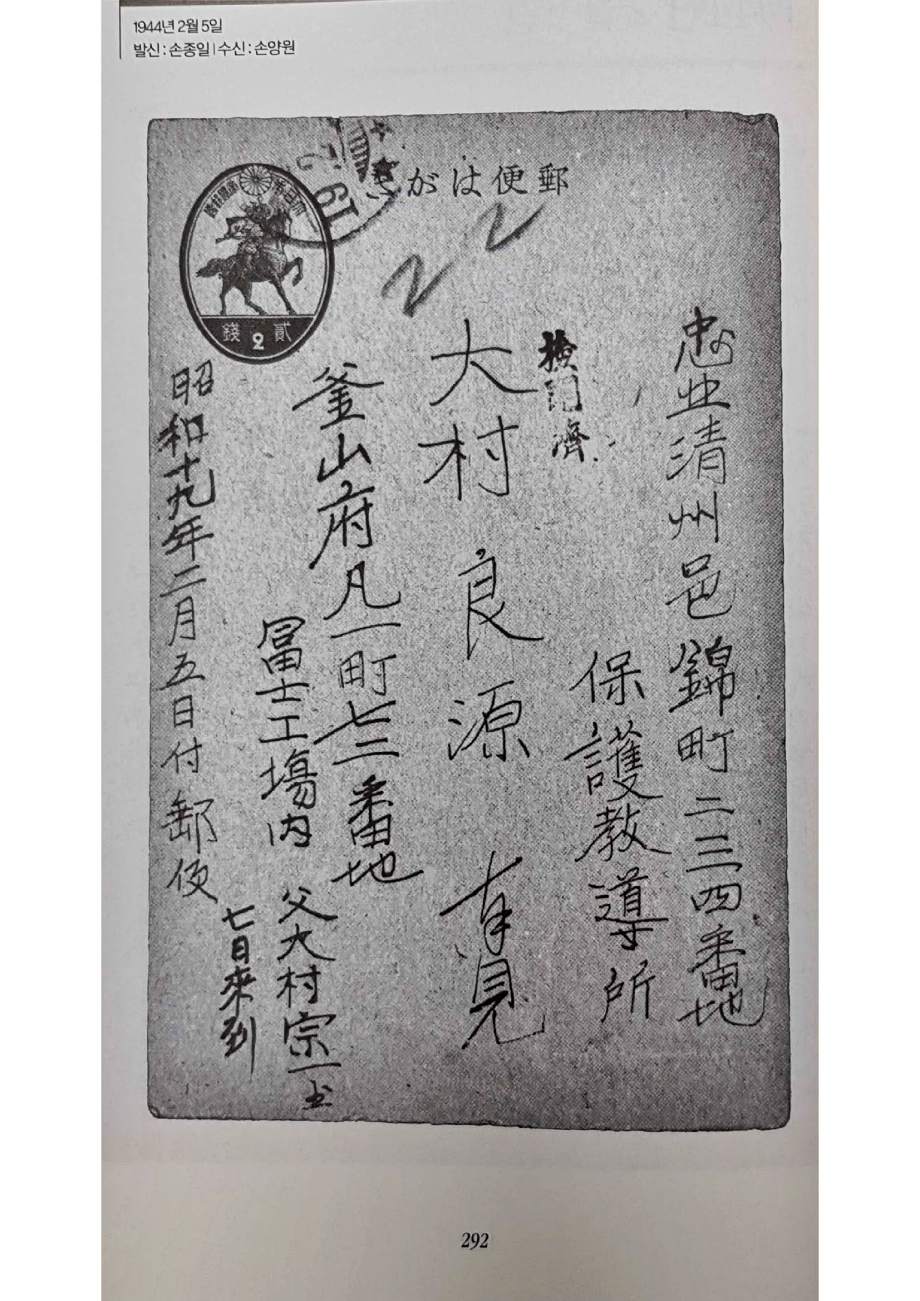 1944년 2월 5일
발신 : 손종일 | 수신 : 손양원
郵便はがき
貳錢
2
22
忠北清州邑錦町二三四番地
保護教導所
檢閱濟
大村良源 有見
釜山府凡一町七二番地
冨士工場内 父大村宗一
昭和十九年二月五日付郵便
七日来到
292